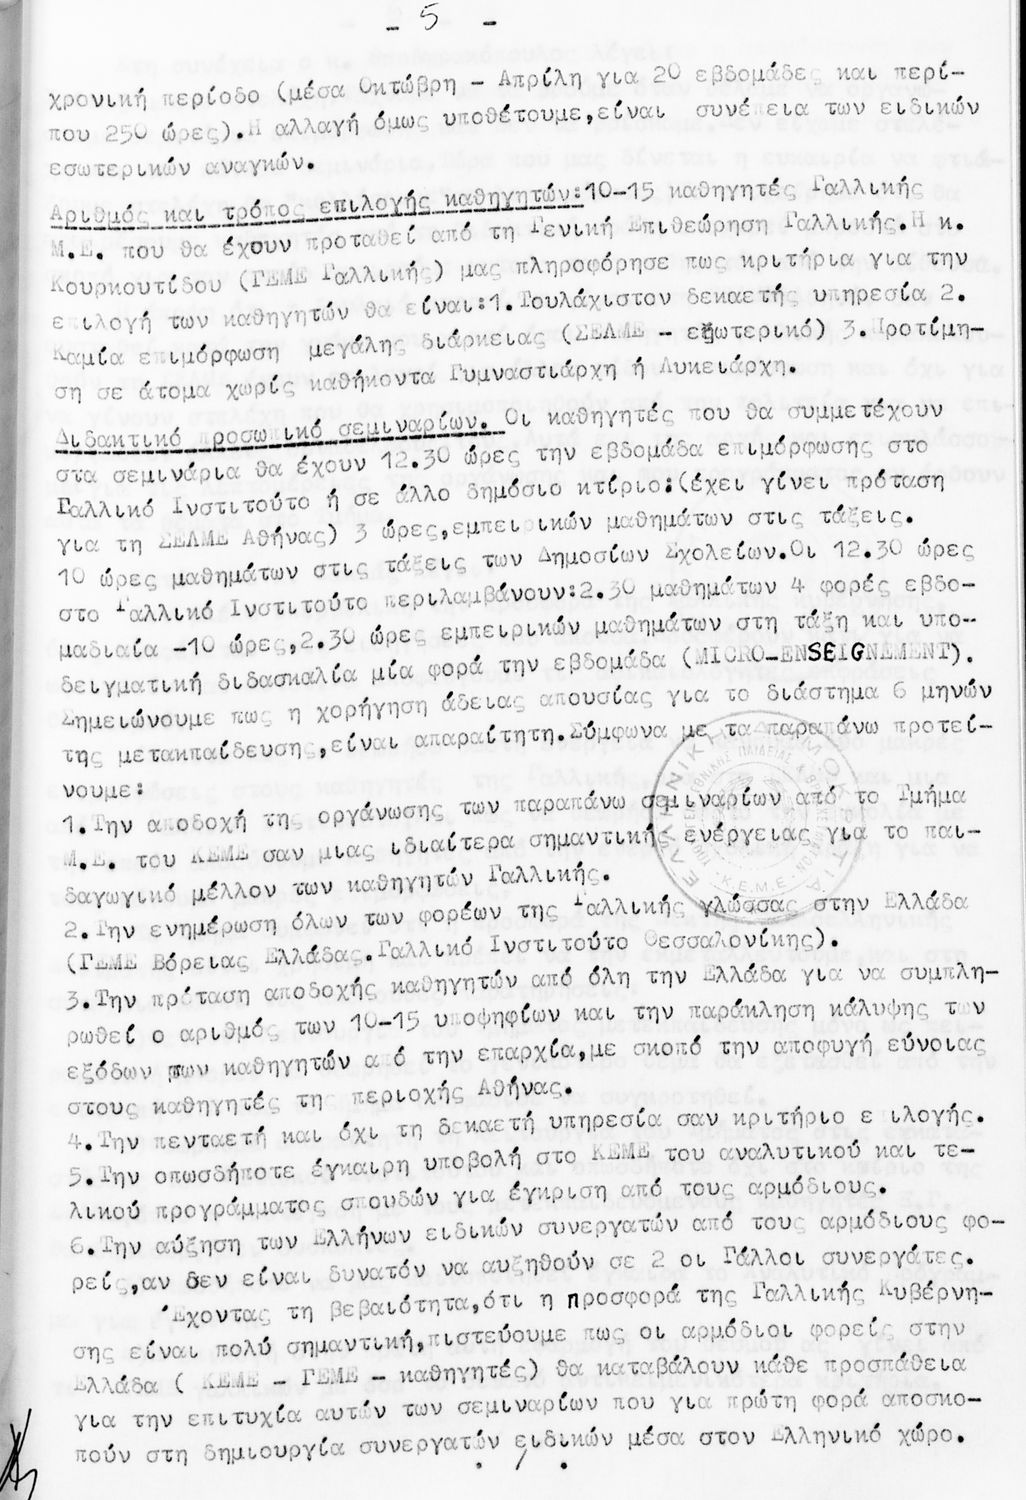 - 5 -
χρονική περίοδο (μέσα Οκτώβρη - Απρίλη για 20 εβδομάδες και περί-
που 250 ώρες).Η αλλαγή όμως υποθέτουμε,είναι συνέπεια των ειδικών
εσωτερικών αναγκών.
Αριθμός και τρόπος επιλογής καθηγητών:10-15 καθηγητές Γαλλικής
Μ.Ε. που θα έχουν προταθεί από τη Γενική Επιθεώρηση Γαλλικής.Η κ.
Κουρκουτίδου (ΓΕΜΕ Γαλλικής) μας πληροφόρησε πως κριτήρια για την
επιλογή των καθηγητών θα είναι:1.Τουλάχιστον δεκαετής υπηρεσία 2.
Καμία επιμόρφωση μεγάλης διάρκειας (ΣΕΛΜΕ - εξωτερικό) 3.Προτίμη-
ση σε άτομα χωρίς καθήκοντα Γυμναστιάρχη ή Λυκειάρχη.
Διδακτικό προσωπικό σεμιναρίων. Οι καθηγητές που θα συμμετέχουν
στα σεμινάρια θα έχουν 12.30 ώρες την εβδομάδα επιμόρφωσης στο
Γαλλικό Ινστιτούτο ή σε άλλο δημόσιο κτίριο:(έχει γίνει πρόταση
για τη ΣΕΛΜΕ Αθήνας) 3 ώρες,εμπειρικών μαθημάτων στις τάξεις.
10 ώρες μαθημάτων στις τάξεις των Δημοσίων Σχολείων.Οι 12.30 ώρες
στο Γαλλικό Ινστιτούτο περιλαμβάνουν:2.30 μαθημάτων 4 φορές εβδο-
μαδιαία -10 ώρες,2.30 ώρες εμπειρικών μαθημάτων στη τάξη και υπο-
δειγματική διδασκαλία μία φορά την εβδομάδα (MICRO-ENSEIGNEMENT).
Σημειώνουμε πως η χορήγηση άδειας απουσίας για το διάστημα 6 μηνών
της μετεκπαίδευσης,είναι απαραίτητη.Σύμφωνα με τα παραπάνω προτεί-
νουμε:
1.Την αποδοχή της οργάνωσης των παραπάνω σεμιναρίων από το Τμήμα
Μ.Ε. του ΚΕΜΕ σαν μιας ιδιαίτερα σημαντικής ενέργειας για το παι-
δαγωγικό μέλλον των καθηγητών Γαλλικής.
2.Την ενημέρωση όλων των φορέων της Γαλλικής γλώσσας στην Ελλάδα
(ΓΕΜΕ Βόρειας Ελλάδας.Γαλλικό Ινστιτούτο Θεσσαλονίκης).
3.Την πρόταση αποδοχής καθηγητών από όλη την Ελλάδα για να συμπλη-
ρωθεί ο αριθμός των 10-15 υποψηφίων και την παράκληση κάλυψης των
εξόδων των καθηγητών από την επαρχία,με σκοπό την αποφυγή εύνοιας
στους καθηγητές της περιοχής Αθήνας.
4.Την πενταετή και όχι τη δεκαετή υπηρεσία σαν κριτήριο ε ιλογής.
5.Την οπωσδήποτε έγκαιρη υποβολή στο ΚΕΜΕ του αναλυτικού και τε-
λικού προγράμματος σπουδών για έγκριση από τους αρμόδιους.
6.Την αύξηση των Ελλήνων ειδικών συνεργατών από τους αρμόδιους φο-
ρείς,αν δεν είναι δυνατόν να αυξηθούν σε 2 οι Γάλλοι συνεργάτες.
Έχοντας τη βεβαιότητα,ότι η προσφορά της Γαλλικής Κυβέρνη-
σης είναι πολύ σημαντική,πιστεύουμε πως οι αρμόδιοι φορείς στην
Ελλάδα ( ΚΕΜΕ - ΓΕΜΕ - καθηγητές) θα καταβάλουν κάθε προσπάθεια
για την επιτυχία αυτών των σεμιναρίων που για πρώτη φορά αποσκο-
πούν στη δημιουργία συνεργατών ειδικών μέσα στον Ελληνικό χώρο.
./.
ΕΛΛΗΝΙΚΗ ΔΗΜΟΚΡΑΤΙΑ
Κ.Ε.Μ.Ε.